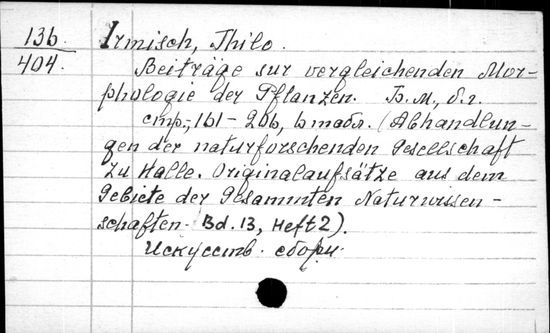 136
404.
Irmisch, Thilo.
Beiträge zur vergleichenden Mor-
phologie der Pflanzen. Б.м., б.г.
стр. 161-206, 6 табл. (Abhandlun-
gen der naturforschenden Gesellschaft
zu Halle. Originalaufsätze aus dem
Gebiete der Gesammten Naturwissen-
schaften. Bd. 13, Heft 2).
Искусств. сборн.